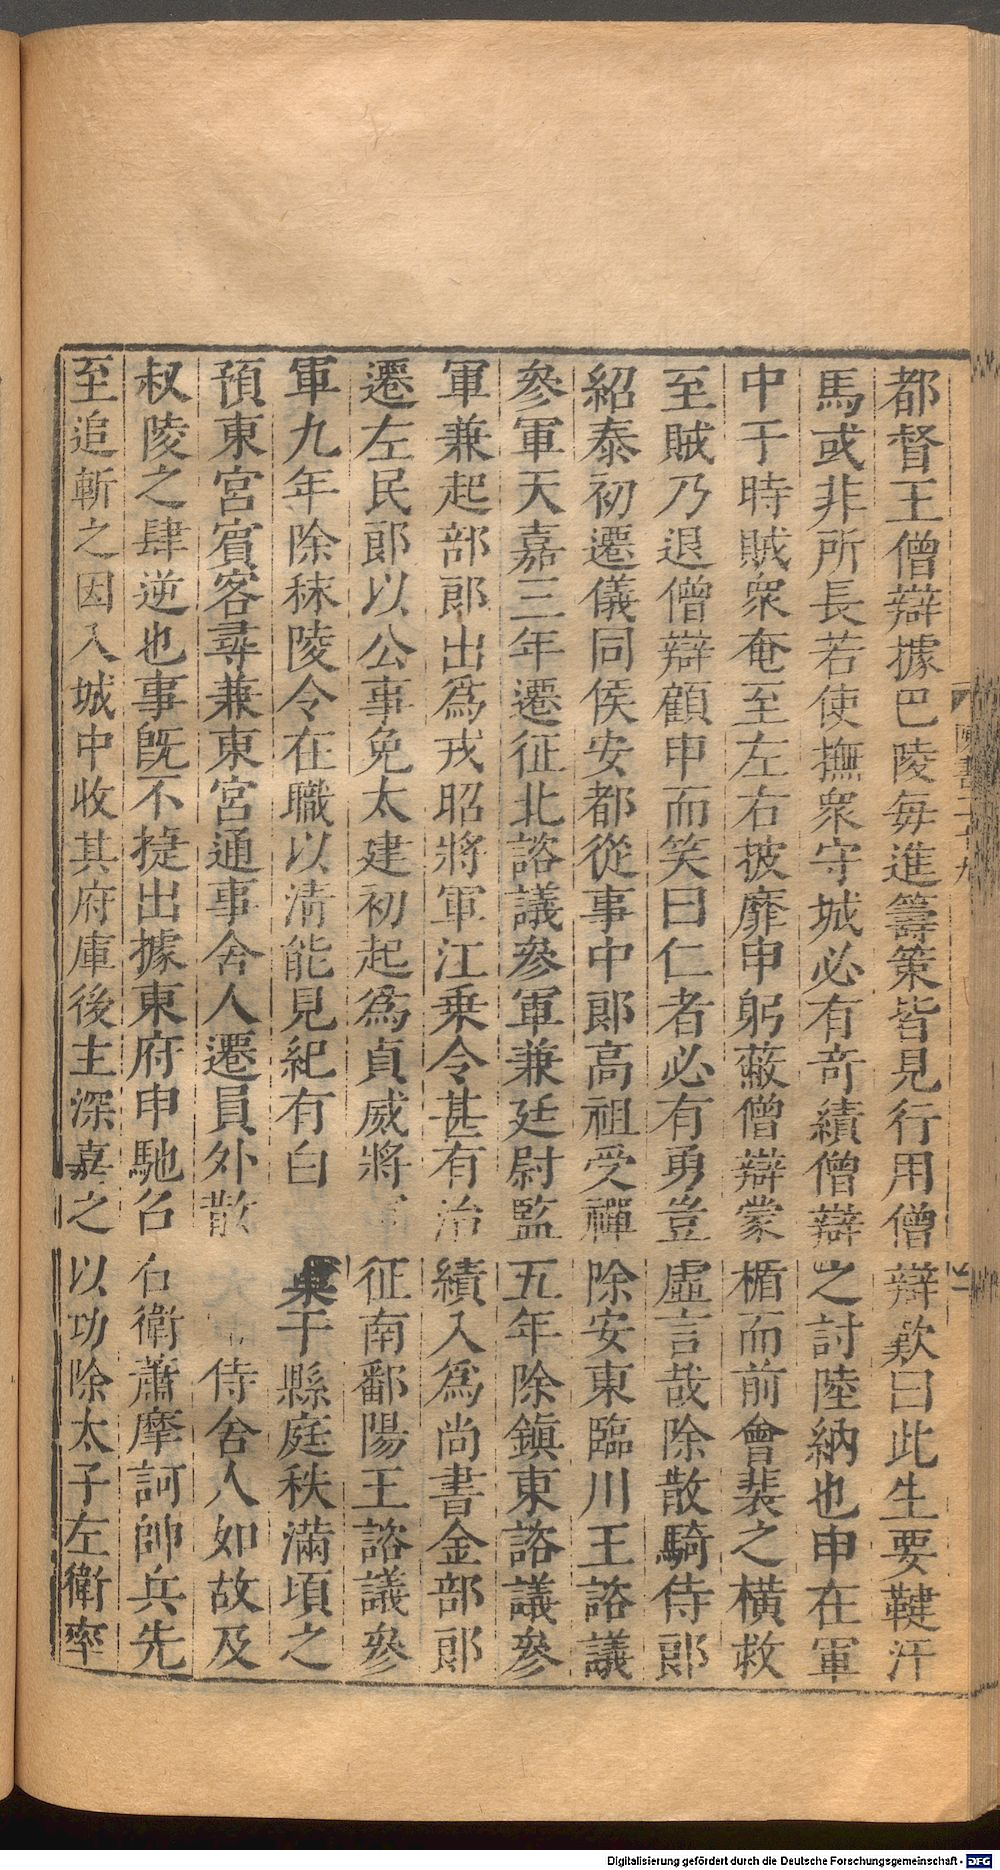 都督王僧辯據巴陵每進籌策皆見行用僧辯歎曰此生要鞬汗
馬或非所長若使撫衆守城必有奇績僧辯之討陸納也申在軍
中于時賊衆奄至左右披靡申躬蔽僧辯蒙楯而前會裴之横救
至賊乃退僧辯顧申而笑曰仁者必有勇豈虛言哉除散騎侍郎
紹泰初遷儀同侯安都從事中郎高祖受禪除安東臨川王諮議
參軍天嘉三年遷征北諮議參軍兼廷尉監五年除鎭東諮議參
軍兼起部郎出爲戎昭將軍江乗令甚有治績入爲尚書金部郎
遷左民郎以公事免太建初起爲貞威將征南鄱陽王諮議參
軍九年除秣陵令在職以清能見紀有白于縣庭秩滿頃之
預東宮賓客尋兼東宮通事舍人遷員外散侍舍人如故及
叔陵之肆逆也事旣不捷出據東府申馳召右衛蕭摩訶帥兵先
至追斬之因入城中收其府庫後主深嘉之以功除太子左衛率
Digitalisierung gefördert durch die Deutsche Forschungsgemeinschaft - DFG